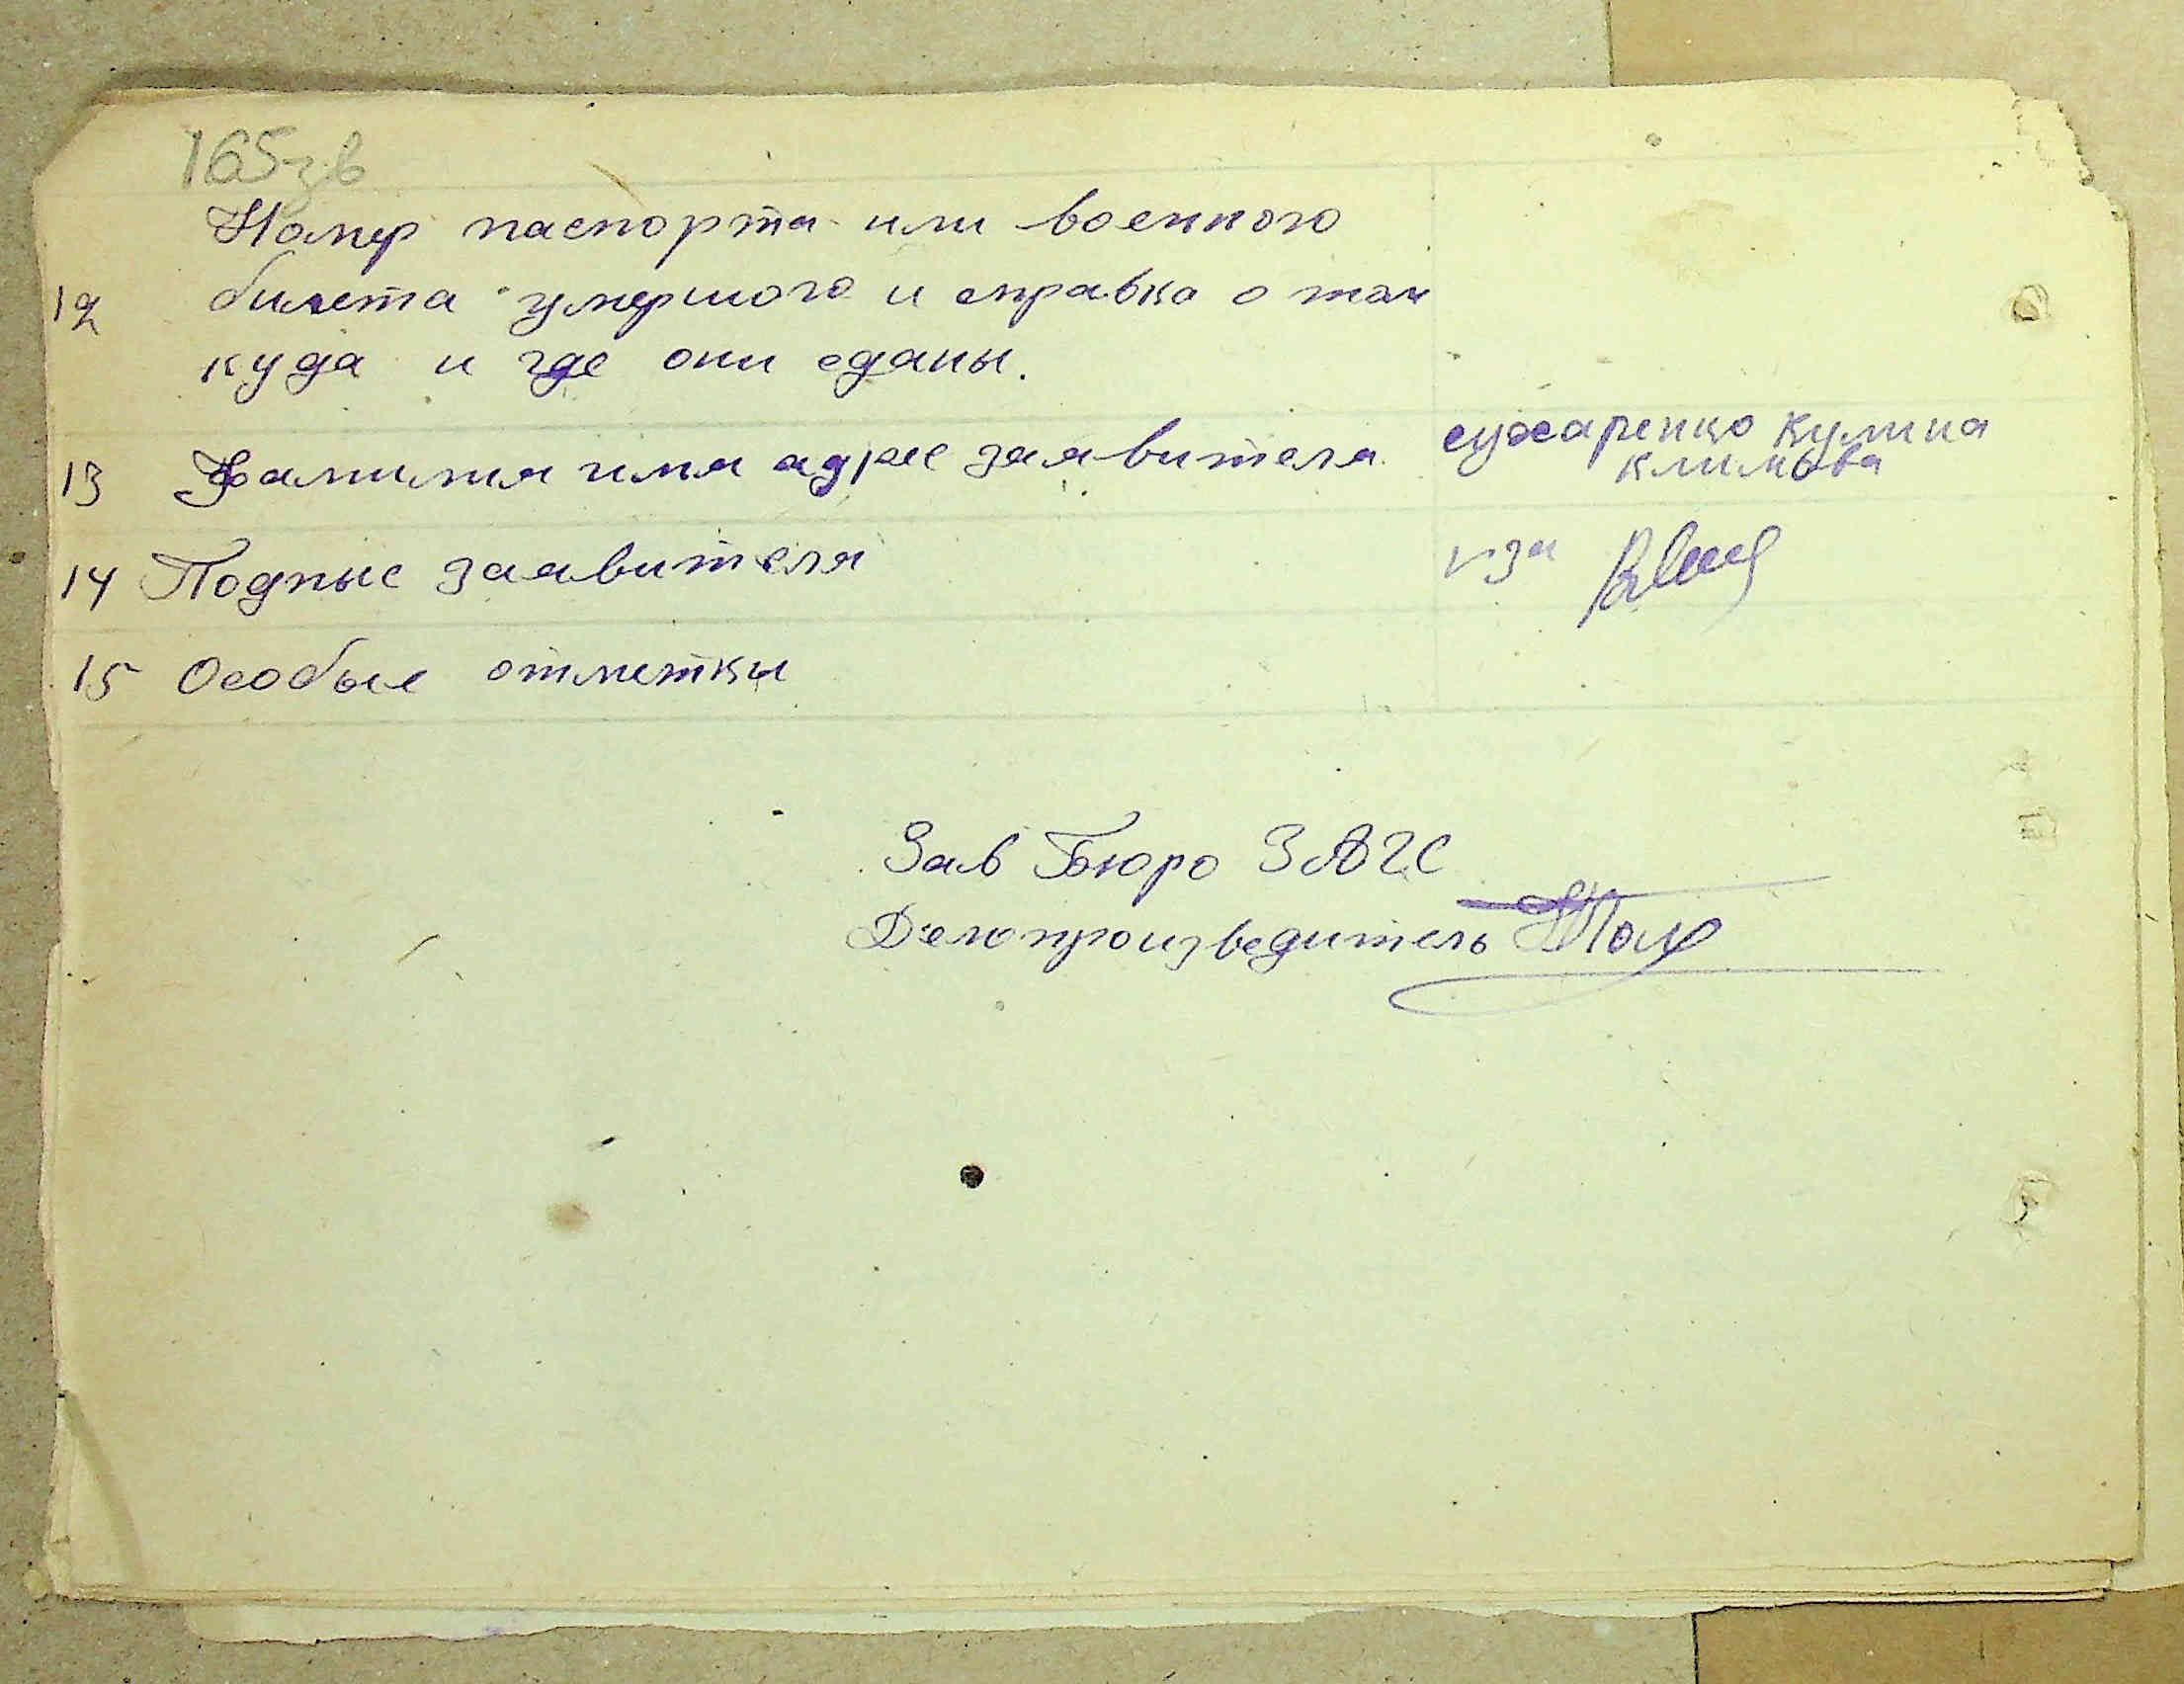 165зв
Номер паспорта или военного
12 билета умершого и справка о том
куда и где они сданы.
13 Фамилия имя адрес заявителя. сухаренко Кулина
климова
14 Подпыс заявителя за
15 Особые отметки
Зав Бюро ЗАГС
Делопроизведитель